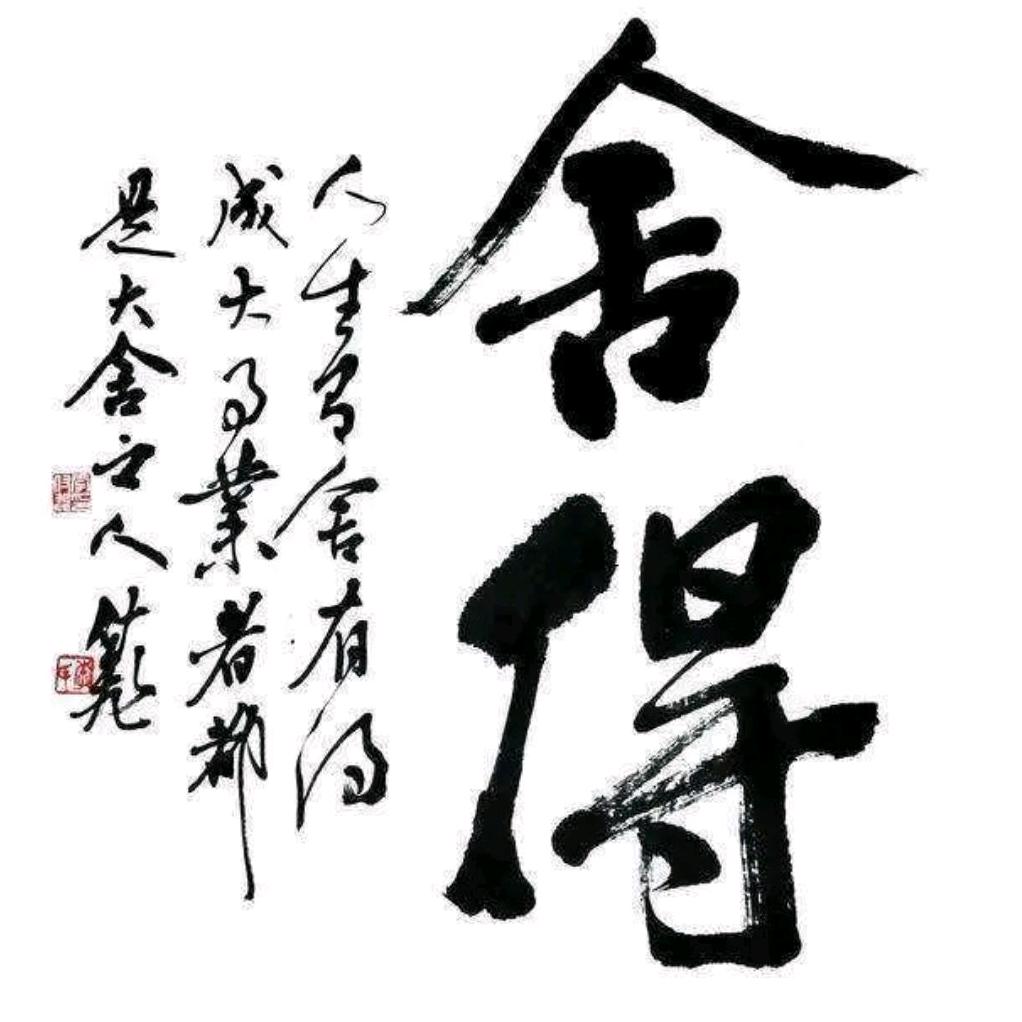 舍得
人生舍有得
成大事業者都
是大舍之人